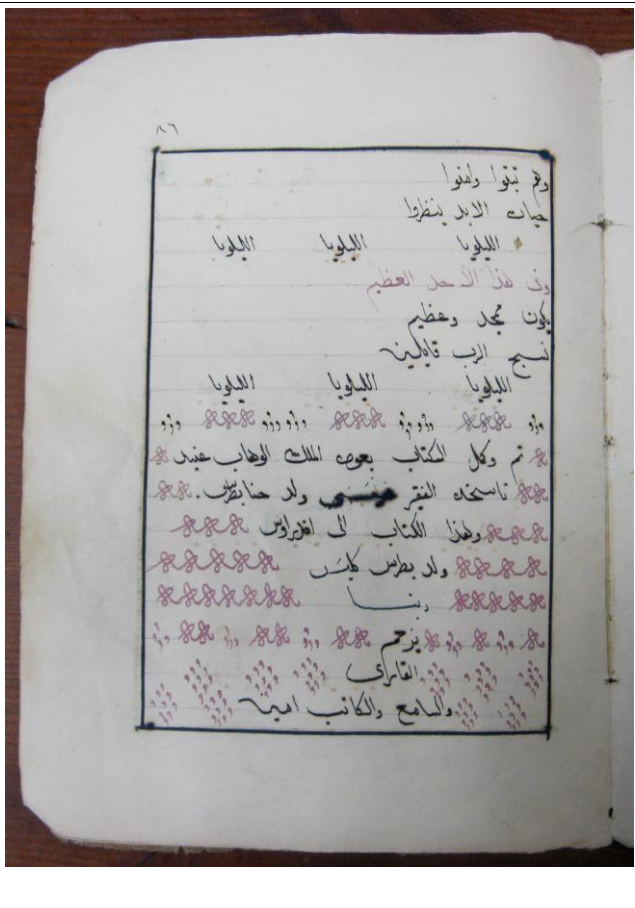 ٨٦
وهم تبتوا وامنوا
حيات الابد ينظروا
الليلويا الليلويا الليلويا
وفى هذا الاحد العظيم
يكون ممجد وعظيم
نسبح الرب قايلين
الليلويا الليلويا الليلويا
تم وكمل الكتاب بعون الملك الوهاب عنيد
ناسخه الفقير ولد حنا بطرس
وهذا الكتاب الى
ولد بطرس
ربنا
يرحم
القارى
والسامع والكاتب امين